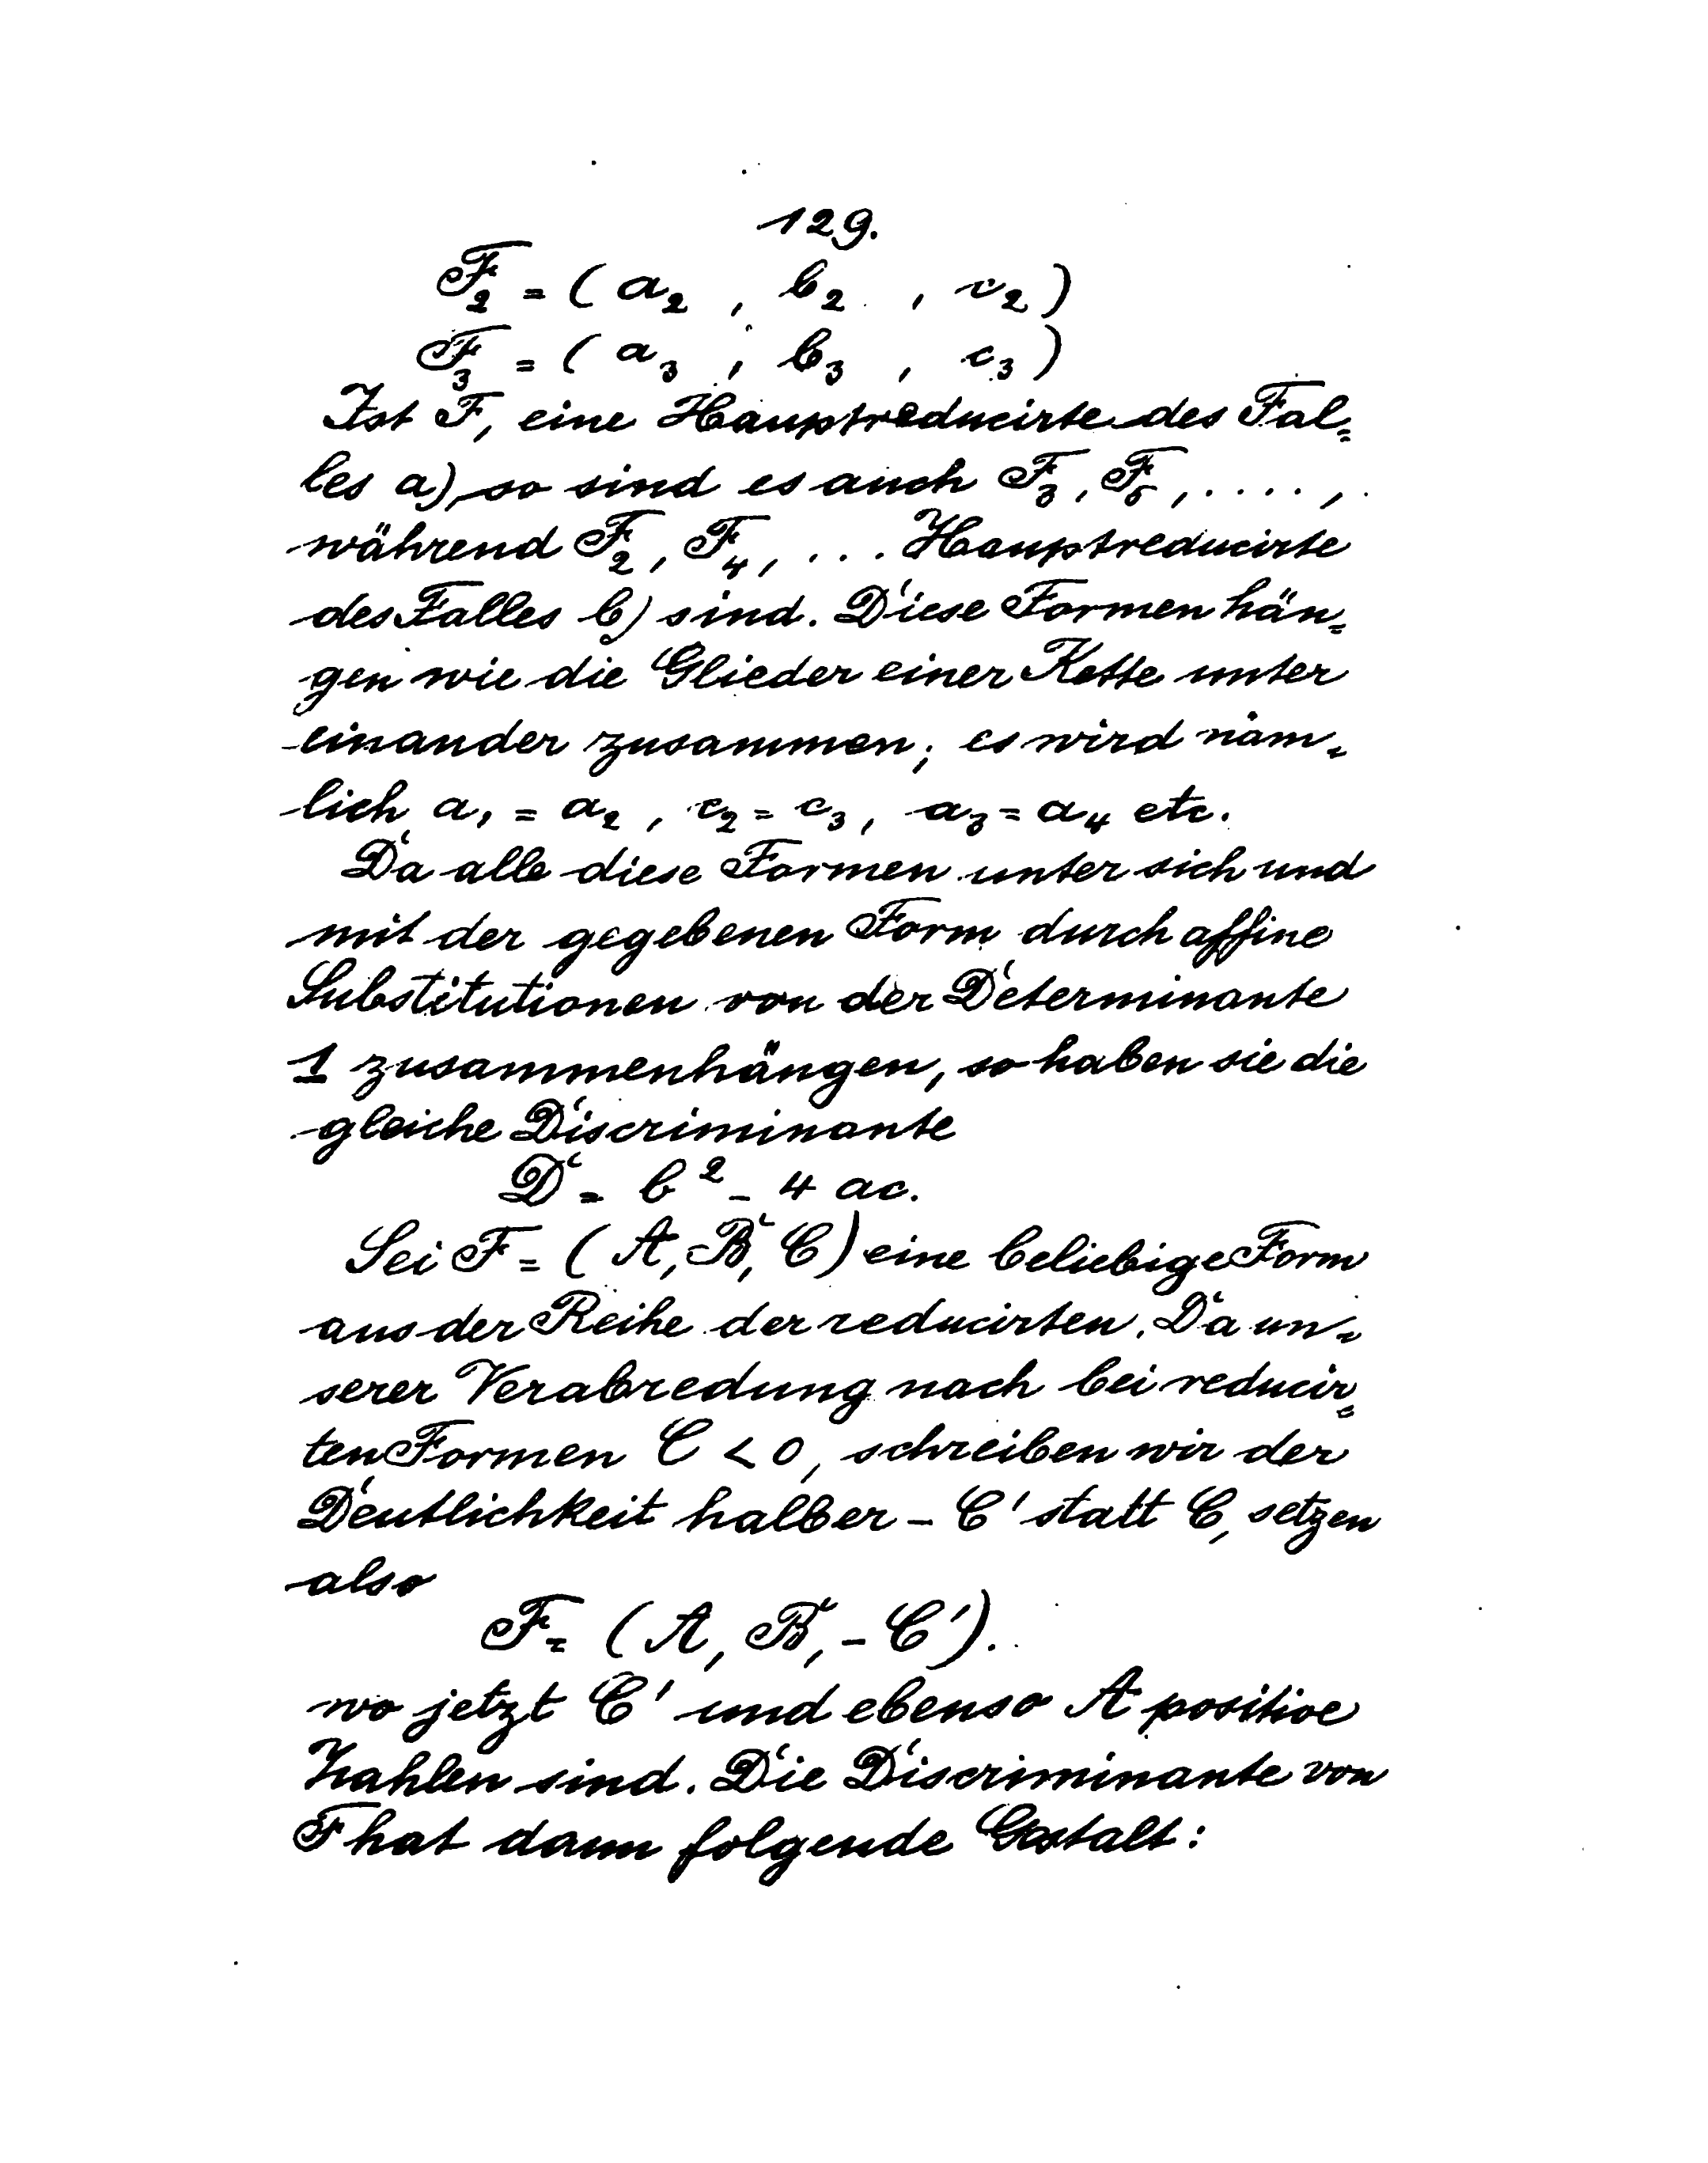 129.
F₂ = (a₂ , b₂ , c₂)
F₃ = (a₃ , b₃ , c₃)
Ist F₁ eine Hauptreducirte des Fal=
les a), so sind es auch F₃, F₅, ....,
während F₂, F₄, ... Hauptreducirte
des Falles b) sind. Diese Formen hän=
gen wie die Glieder einer Kette unter
einander zusammen; es wird näm=
lich a₁ = a₂ , c₂ = c₃ , a₃ = a₄ etc.
Da alle diese Formen unter sich und
mit der gegebenen Form durch affine
Substitutionen von der Determinante
1 zusammenhängen, so haben sie die
gleiche Discriminante
D = b² - 4 ac.
Sei F = (A, B, C) eine beliebige Form
aus der Reihe der reducirten. Da un=
serer Verabredung nach bei reducir=
ten Formen C < 0, schreiben wir der
Deutlichkeit halber - C' statt C, setzen
also
F = (A, B, - C').
wo jetzt C' und ebenso A positive
Zahlen sind. Die Discriminante von
F hat dann folgende Gestalt: